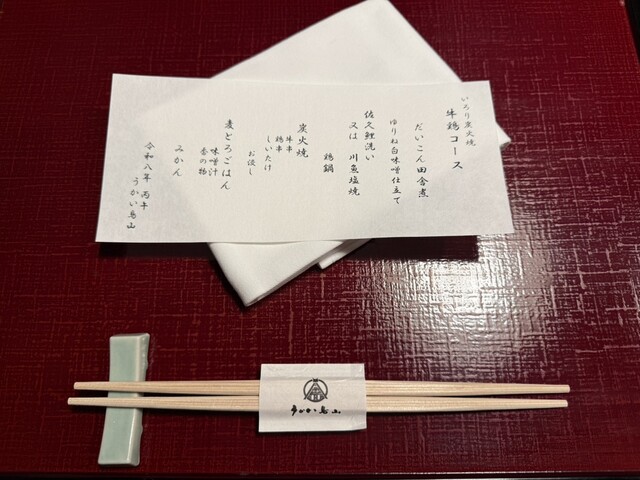 いろり炭火焼
牛鶏コース
だいこん田舎煮
ゆりね白味噌仕立て
佐久鯉洗い
又は 川魚塩焼
鶏鍋
炭火焼
牛串
鶏串
しいたけ
お浸し
麦とろごはん
味噌汁
香の物
みかん
令和八年 丙午
うかい鳥山
うかい鳥山